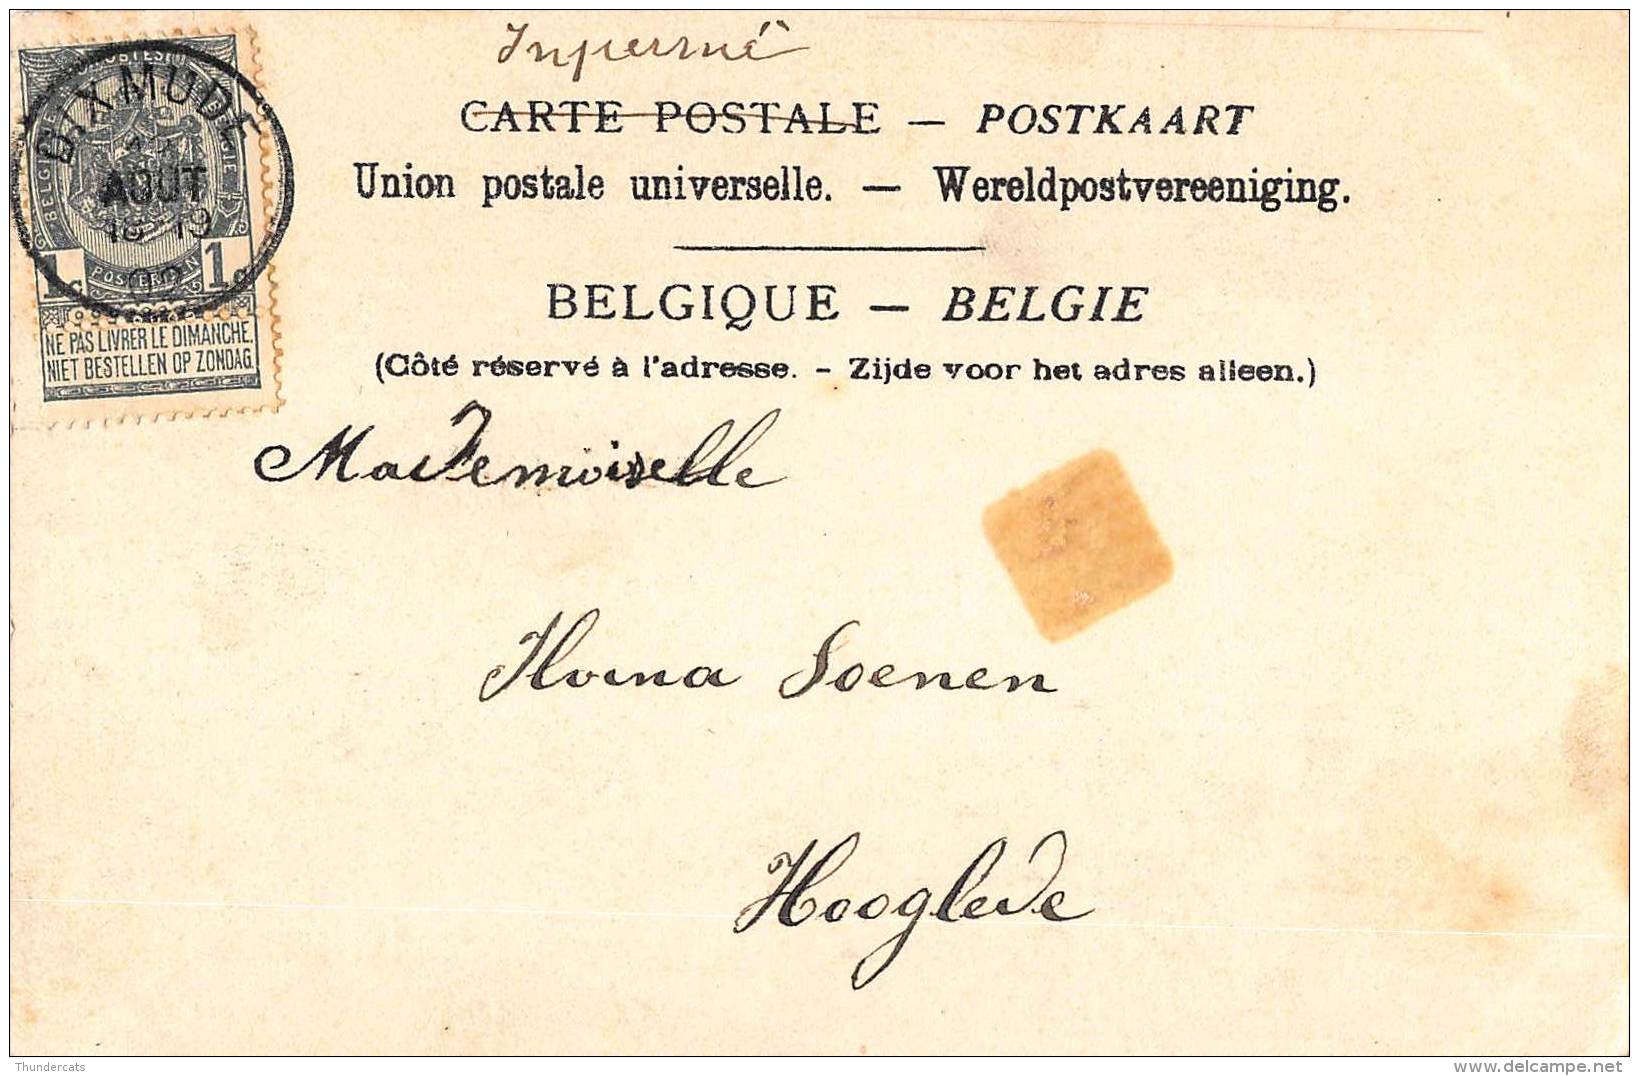 Inpermé
CARTE POSTALE — POSTKAART
Union postale universelle. — Wereldpostvereeniging.
BELGIQUE — BELGIE
(Côté réservé à l'adresse. - Zijde voor het adres alleen.)
DIXMUDE
AOUT
1c 1c
POSTERIJEN
NE PAS LIVRER LE DIMANCHE.
NIET BESTELLEN OP ZONDAG.
Mademoiselle
Soenen
Hooglede
Thundercats
www.delcampe.net